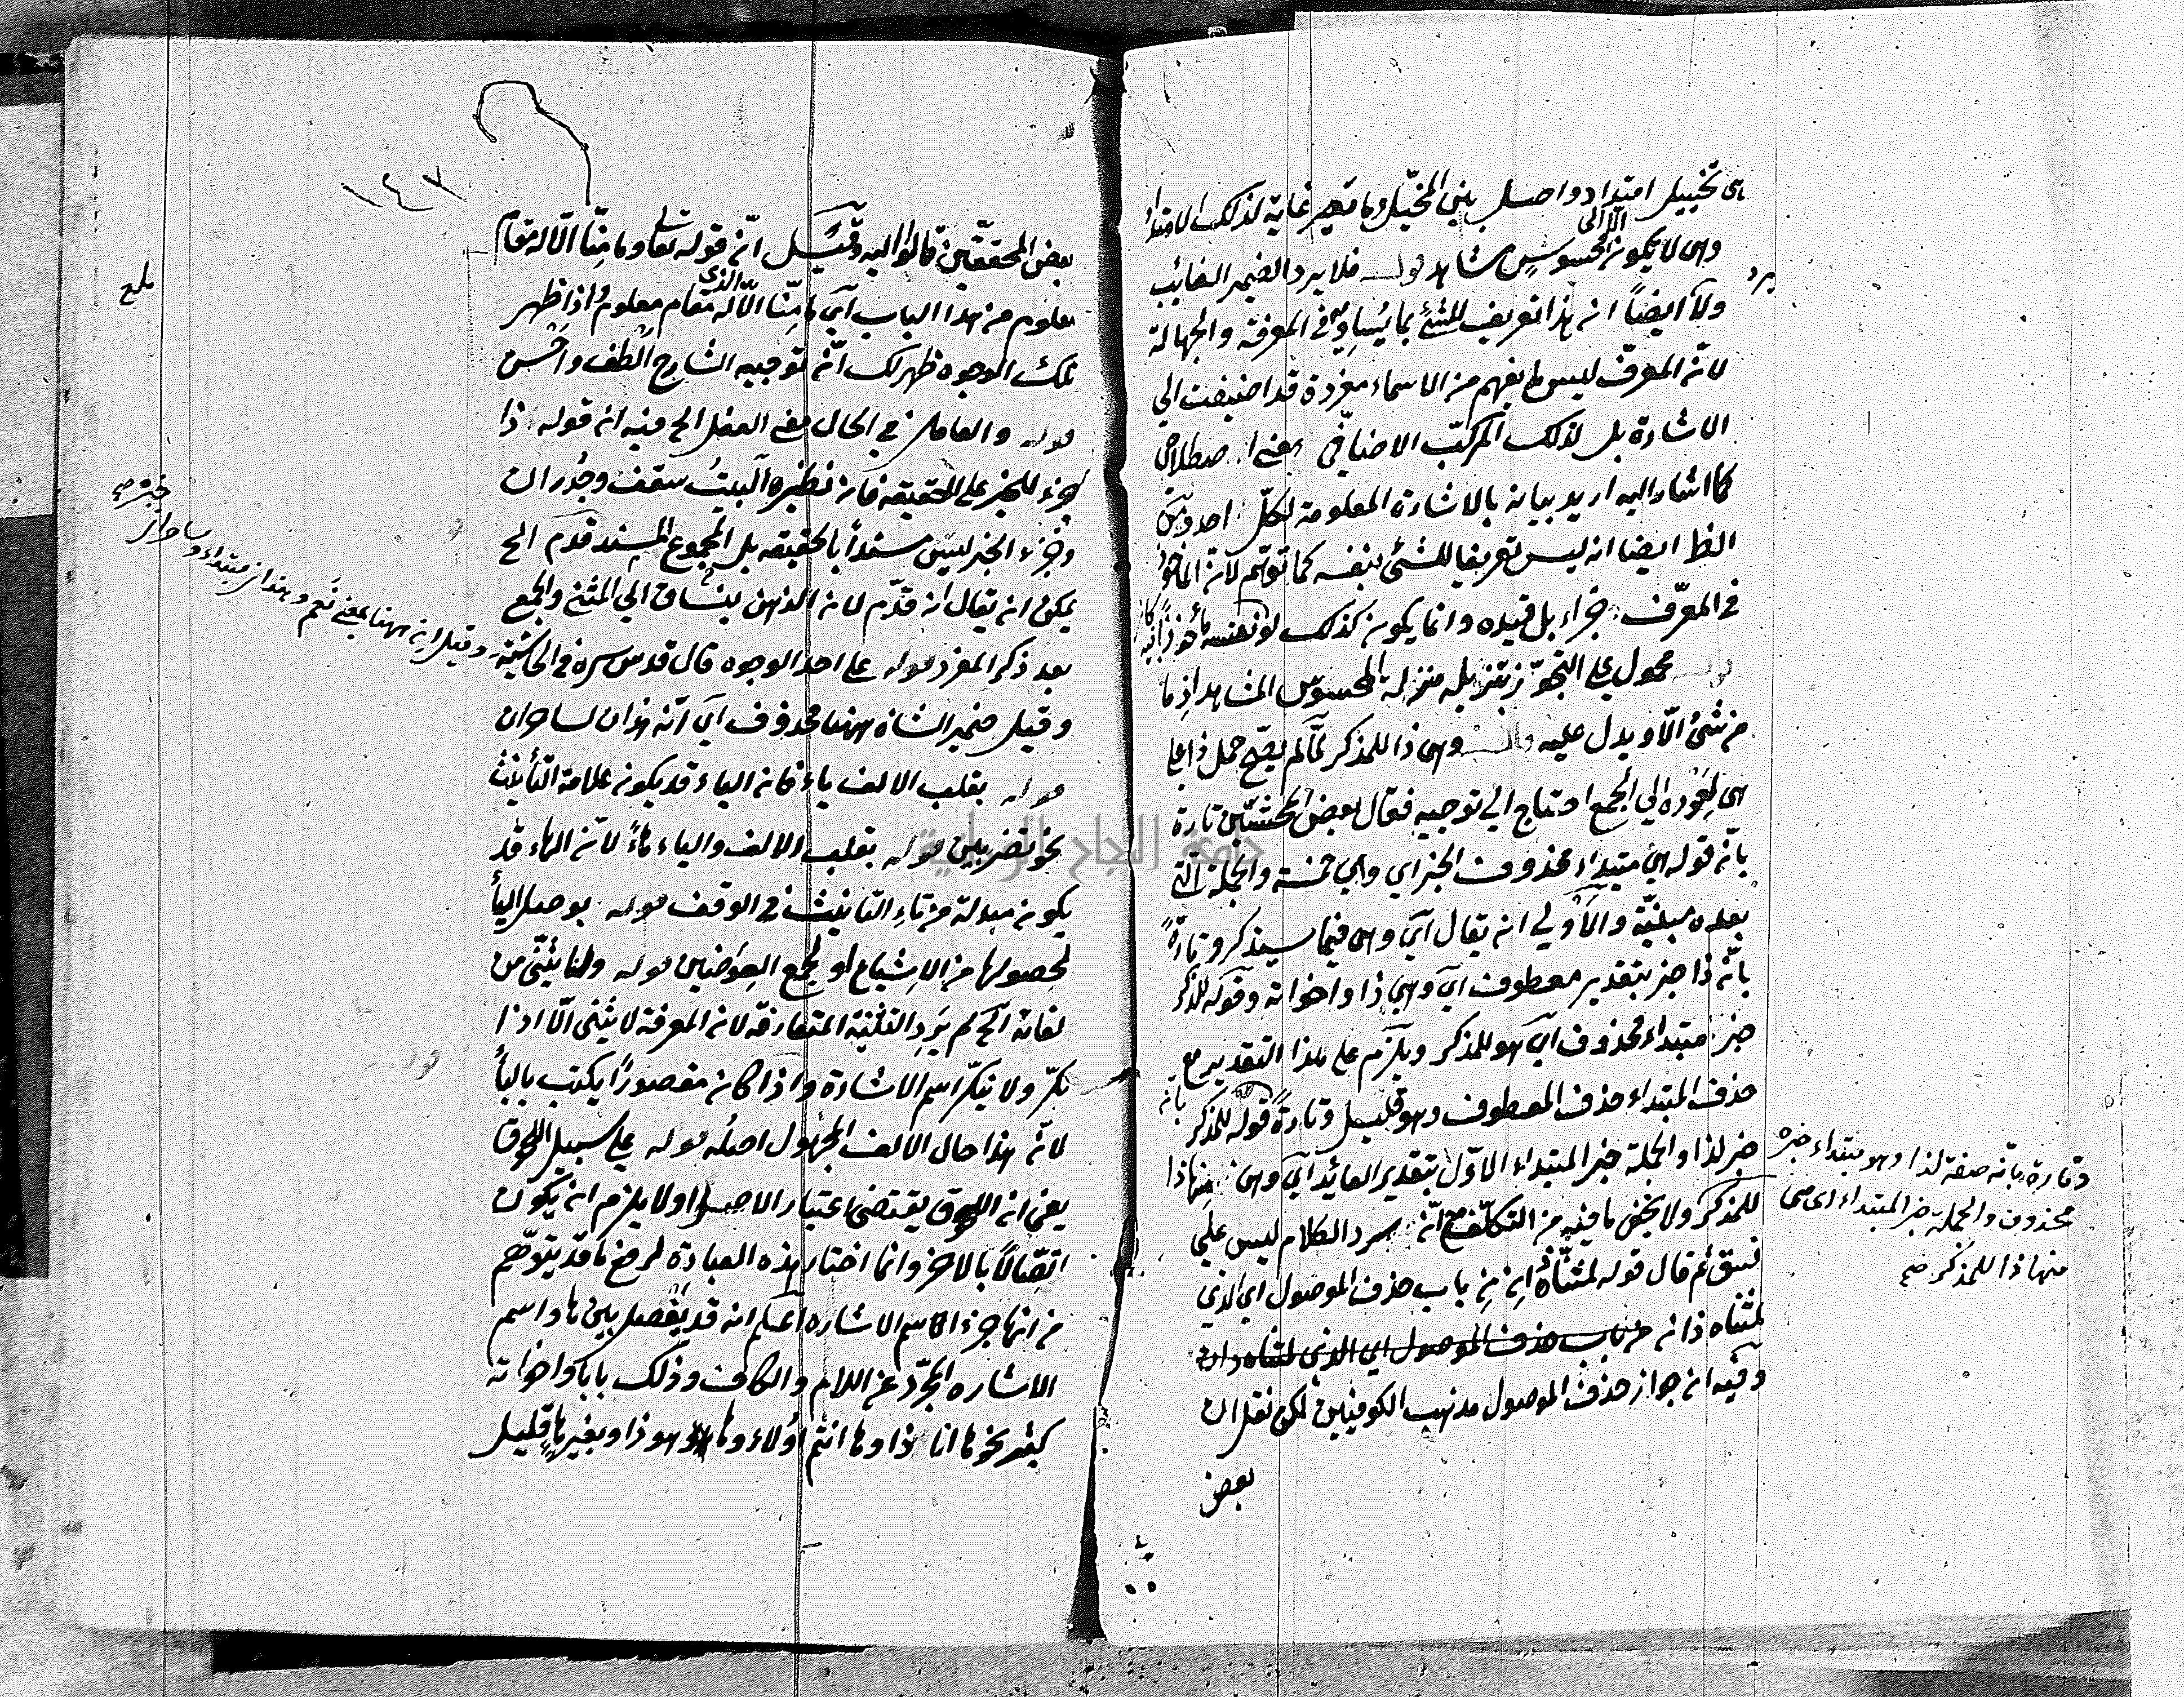 هي تخييل امتداد واصل بين المخيل وما تعير غاية لذلك الامتداد
وهي لا يكون الا الى محسوس مشاهد قوله فلا يرد الضمير الغائب
ولا ايضاً ان هذا تعريف للشئ بما يساويه في المعرفة والجهالة
لانّ المعرّف ليس ما يفهم من الاسماء مفردة قد اضيفت الى
الاشارة بل لذلك المركّب الاضافي معنى اصطلاحي
كما اشار اليه اريد بيانه بالاشارة المعلومة لكلّ احد ومن
الظ ايضا انه ليس تعريفا للشئ بنفسه كما توهّم لانّ المأخوذ
في المعرّف جزاء بل قيده وانما يكون كذلك لو نفسه مأخوذا فيه
قوله محمول على التجوّز بتنزيله منزلة المحسوس المشاهد اذ ما
من شئ الّا ويدل عليه قوله وهي ذا للمذكر لمّا لم يصحّ حمل ذا على
هي لعوده الى الجمع احتاج الى توجيه فقال بعض المحشّين تارة
بانّ قوله هي مبتداء محذوف الخبر اي وهي خمسة والجملة التي
بعده مبيّنة والاولى ان يقال اي وهي فيما سيذكر وتارةً
بانّ ذا خبر بتقدير معطوف اي وهي ذا واخواته وقوله للمذكر
خبر مبتداء محذوف اي هو للمذكر ويلزم على هذا التقدير مع
حذف المبتداء حذف المعطوف وهو قليل وتارةً بانّ قوله للمذكر
خبر لذا والجملة خبر المبتداء الاوّل بتقدير العائد اي وهي منها ذا
للمذكر ولا يخفى ما فيه من التكلّف مع انّ سرد الكلام ليس على
نسق ثم قال قوله لمثنّاه ان من باب حذف الموصول اي الذي
لمثناه ذان من باب حذف الموصول اي الذي لمثناه ذان
وفيه ان جواز حذف الموصول مذهب الكوفيين لكن نقل ان
بعض
وتارة بانّه صفة لذا وهو مبتداء خبره
محذوف والجملة خبر المبتداء اى هي
منها ذا للمذكر صح
١٤٧
بعض المحققين مالوا اليه وقيل انّ قوله تعالى وما منّا الّا له مقام
معلوم من هذا الباب اي ما منّا الّا الذي له مقام معلوم واذا ظهر
تلك الوجوه ظهر لك انّ توجيه الشارح الطف واحسن
قوله والعامل في الحال معنى الفعل الخ فيه ان قوله ذا
جزء للخبر على الحقيقة فان نظيره البيتُ سقف وجُدران
وجزء الخبر ليس مسنداً بالحقيقه بل المجموع المسند قدّم الخ
يمكن ان يقال انه قدّم لان الذهن ينساق الى المثنى والجمع
بعد ذكر المفرد قوله على احد الوجوه قال قدس سره في الحاشية
وقيل ضمير الشان ههنا محذوف اي انّه هذان لساحران
قوله بقلب الالف ياء فان الياء قد يكون علامة التأنيث
نحو تضربين قوله بقلب الالف والياء هاءً لانّ الهاء قد
يكون مبدلة من تاء التانيث في الوقف قوله بوصل الياء
لحصولها من الاشباع او لجمع العوضين قوله ولما يثنّى من
لغاته الخ لم يرد التثنية المتعارفة لان المعرفة لا يثنى الّا اذا
نكرّ ولا ينكرّ اسم الاشارة واذا كان مقصوراً يكتب بالياء
لانّ هذا حال الالف المجهول اصلُه قوله على سبيل اللحوق
يعني ان اللحوق يقتضى اعتبار الاصل اولا يلزم ان يكون
اتصالاً بالاخر وانما اختار هذه العبارة لرفع ما قد يتوهّم
من انها جزء الاسم الاشاره اعلم انه قد يفصل بين ها واسم
الاشاره المجرّد عن اللام والكاف وذلك بانا واخواته
كثير نحو ها انا ذا وها انتم اولاء وها هو ذا وبغيرها قليل
بلغ
وقيل ان ههنا بمعنى نَعم وهذان مبتداء وساحران
خبره صح